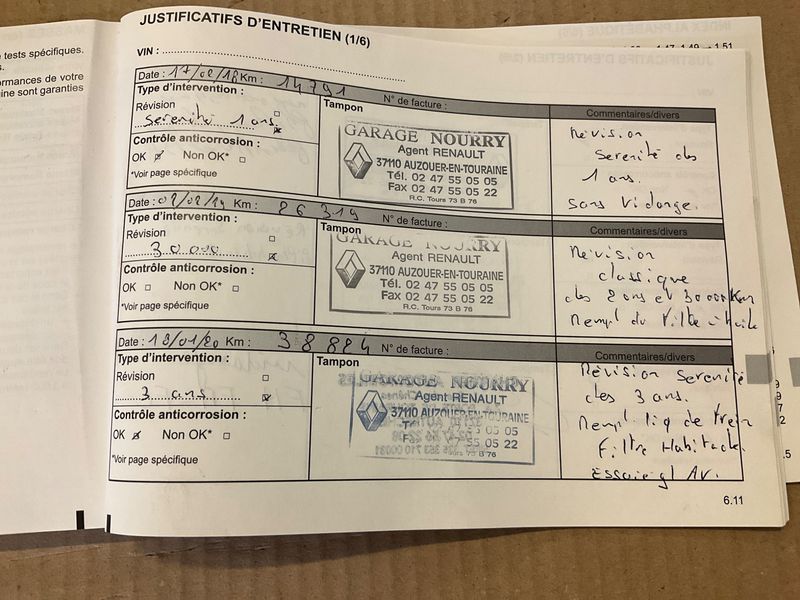 JUSTIFICATIFS D'ENTRETIEN (1/6)
VIN :
tests spécifiques.
rmances de votre
ine sont garanties
Date : 17/02/18 Km : 14791
N° de facture :
Commentaires/divers
Type d'intervention :
Révision
Serenité 1 ans
Contrôle anticorrosion :
OK Non OK*
*Voir page spécifique
Tampon
GARAGE NOURRY
Agent RENAULT
37110 AUZOUER-EN-TOURAINE
Tél. 02 47 55 05 05
Fax 02 47 55 05 22
R.C. Tours 73 B 76
Révision
Serenité des
1 ans.
Sans Vidange.
Date : 02/02/19 Km : 26319
N° de facture :
Commentaires/divers
Type d'intervention :
Révision
30 000
Contrôle anticorrosion :
OK Non OK*
*Voir page spécifique
Tampon
GARAGE NOURRY
Agent RENAULT
37110 AUZOUER-EN-TOURAINE
Tél. 02 47 55 05 05
Fax 02 47 55 05 22
R.C. Tours 73 B 76
Révision
classique
des 2 ans et 30000Km
Rempl du Filtre à Huile
Date : 18/01/20 Km : 38884
N° de facture :
Commentaires/divers
Type d'intervention :
Révision
3 ans
Contrôle anticorrosion :
OK Non OK*
*Voir page spécifique
Tampon
GARAGE NOURRY
Agent RENAULT
37110 AUZOUER-EN-TOURAINE
55 05 05
55 05 22
Tours 73 B 76
Révision Serenité
des 3 ans.
Rempl liq de frein
Filtre Habitacle
Essuie gl AV.
6.11